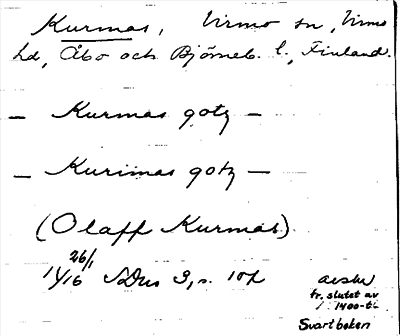 Kurmas, Virmo sn, Virmo
hd, Åbo och Björneb. l., Finland.
- Kurmas gotz -
- Kurimas gotz -
(Olaff Kurmas)
26/1
1416 SDns 3, s.
avskr
fr. slutet av
1400-t.
Svartboken